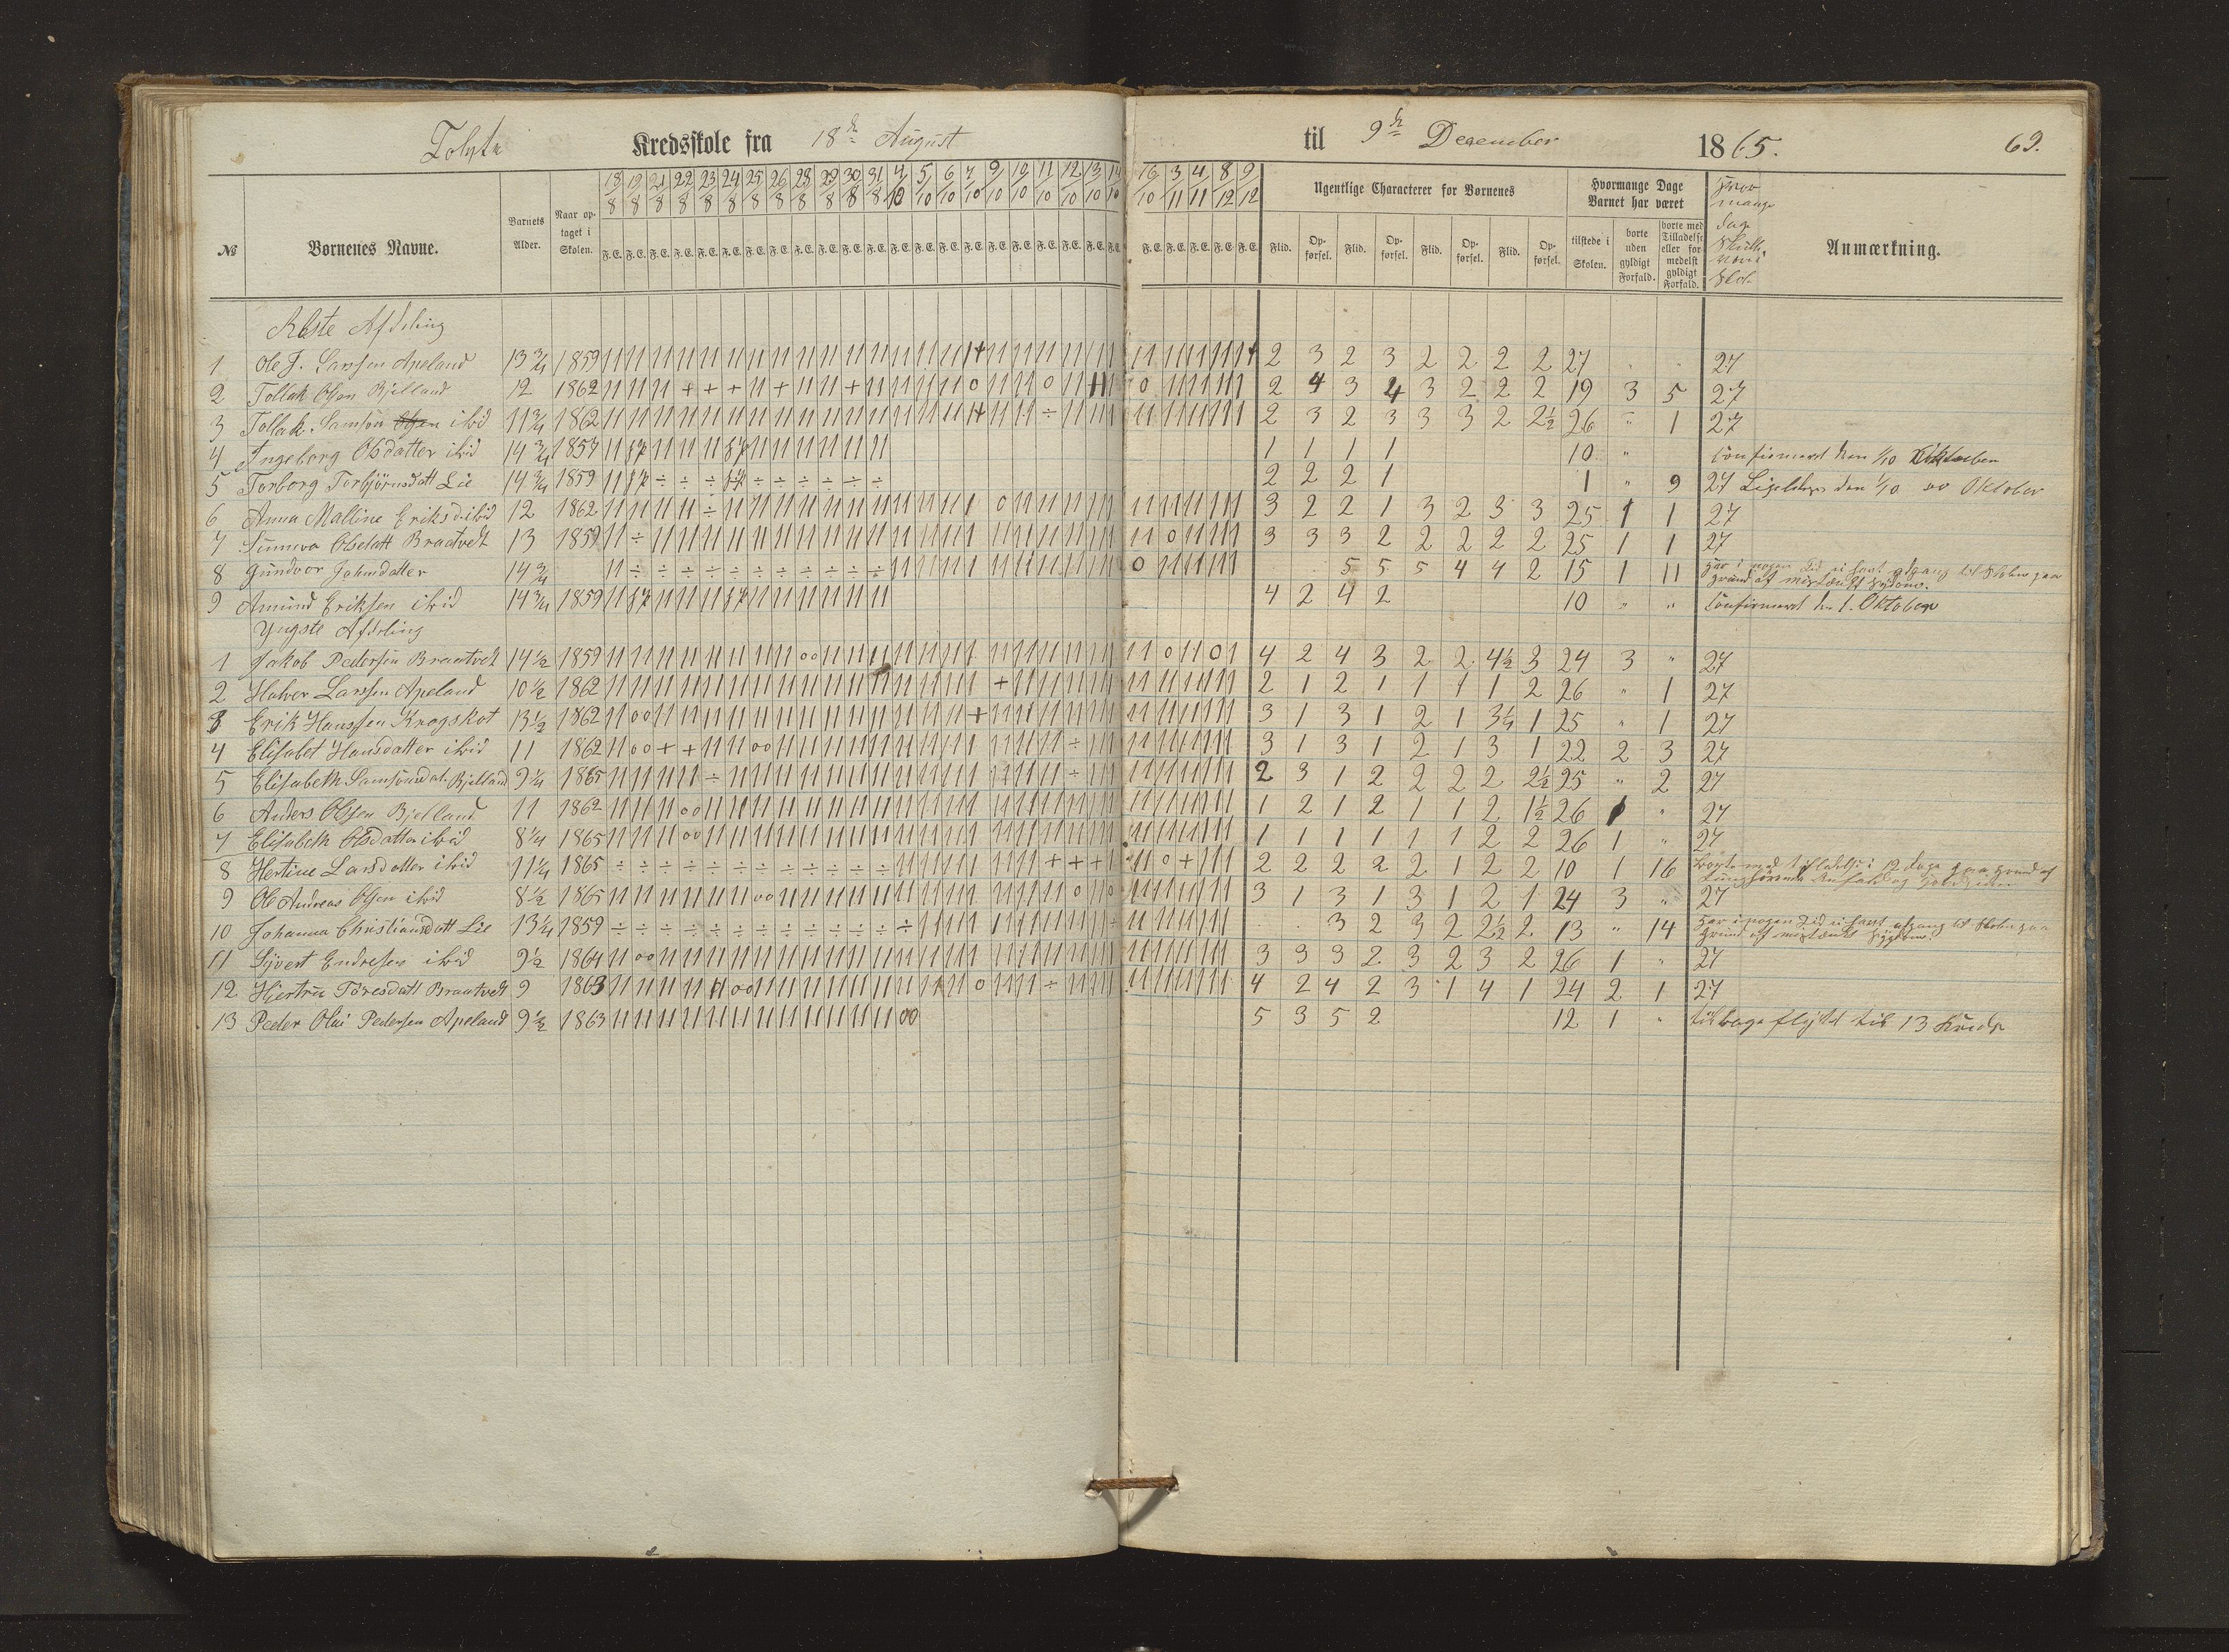 Tolvte Kredsskole fra 18de August til 9de December 1865. 69.
№ Børnenes Navne. Barnets Alder. Naar optaget i Skolen. Ugentlige Characterer for Børnenes Hvormange Dage Barnet har været Anmærkning.
18/8 19/8 21/8 22/8 23/8 24/8 25/8 26/8 28/8 29/8 30/8 31/8 4/10 5/10 6/10 7/10 9/10 10/10 11/10 12/10 13/10 14/10 16/10 3/11 4/11 8/12 9/12
F.E. F.E. F.E. F.E. F.E. F.E. F.E. F.E. F.E. F.E. F.E. F.E. F.E. F.E. F.E. F.E. F.E. F.E. F.E. F.E. F.E. F.E. F.E. F.E. F.E. F.E. F.E.
Flid. Opførsel. Flid. Opførsel. Flid. Opførsel. Flid. Opførsel. tilstede i Skolen. borte uden gyldigt Forfald. borte med Tilladelse eller formedelst gyldigt Forfald.
Hvor mange Dage Skolen
Ælste Afdeling
1 Ole J. Larssen Apeland 13 3/4 1859 2 3 2 3 2 2 2 2 27 " " 27
2 Tollak Olsen Bjelland 12 1862 2 4 3 4 3 2 2 2 19 3 5 27
3 Tollak Samson Olsen ibid 11 3/4 1862 2 3 2 3 3 3 2 2½ 26 " 1 27
4 Ingeborg Olsdatter ibid 14 3/4 1857 1 1 1 1 10 " Confirmeret den 1/10 Oktober
5 Torborg Torbjörnsdatt Lie 14 3/4 1859 2 2 2 1 1 " 9 27 Ligeledes den 1/10 Oktober
6 Anna Malline Eriksd. ibid 12 1862 3 2 2 1 3 2 3 3 25 1 1 27
7 Sunneva Olsdatt Braatvedt 13 1859 3 3 3 2 2 2 2 2 25 1 1 27
8 Gundvor Johnsdatter 14 3/4 5 5 5 4 4 2 15 1 11 Har i nogen Tid ei havt adgang til Skolen paa
grund af mistænkt Sygdom.
9 Amund Eriksen ibid 14 3/4 1859 4 2 4 2 10 " " Confirmeret den 1. Oktober
Yngste Afdeling
1 Jakob Pedersen Braatvedt 14½ 1859 4 2 4 3 2 2 4½ 3 24 3 " 27
2 Halver Larssen Apeland 10½ 1862 2 1 2 1 1 1 1 2 26 " 1 27
3 Erik Hanssen Kragskot 13½ 1862 3 1 3 1 2 1 3¼ 1 25 " 1 27
4 Elisabet Hansdatter ibid 11 1862 3 1 3 1 2 1 3 1 22 2 3 27
5 Elisabeth Samsonsdat. Bjelland 9¼ 1865 2 3 1 2 2 2 2 2½ 25 " 2 27
6 Anders Olsen Bjelland 11 1862 1 2 1 2 1 1 2 1½ 26 1 " 27
7 Elisabeth Olsdatter ibid 8¼ 1865 1 1 1 1 1 1 2 2 26 1 " 27
8 Hertine Larsdatter ibid 11¼ 1865 2 2 2 2 2 1 2 2 10 1 16 Borte med tilladelse i 12 dage paa grund af
9 Ole Andreas Olsen ibid 8½ 1865 3 1 3 1 3 1 2 1 24 3 " 27
10 Johanna Christiansdatt Lie 13¼ 1859 3 2 3 2 2½ 2 13 " 14 Har i nogen Tid ei havt adgang til Skolen paa
grund af mistænkt Sygdom.
11 Sjvert Endresen ibid 9½ 1864 3 3 3 2 3 2 3 2 26 1 " 27
12 Hjertru Toresdatt Braatvedt 9 1863 4 2 4 2 3 1 4 1 24 2 1 27
13 Peder Olai Pedersen Apeland 9½ 1863 5 3 5 2 12 1 " tilbage flyttet til 13 Kreds